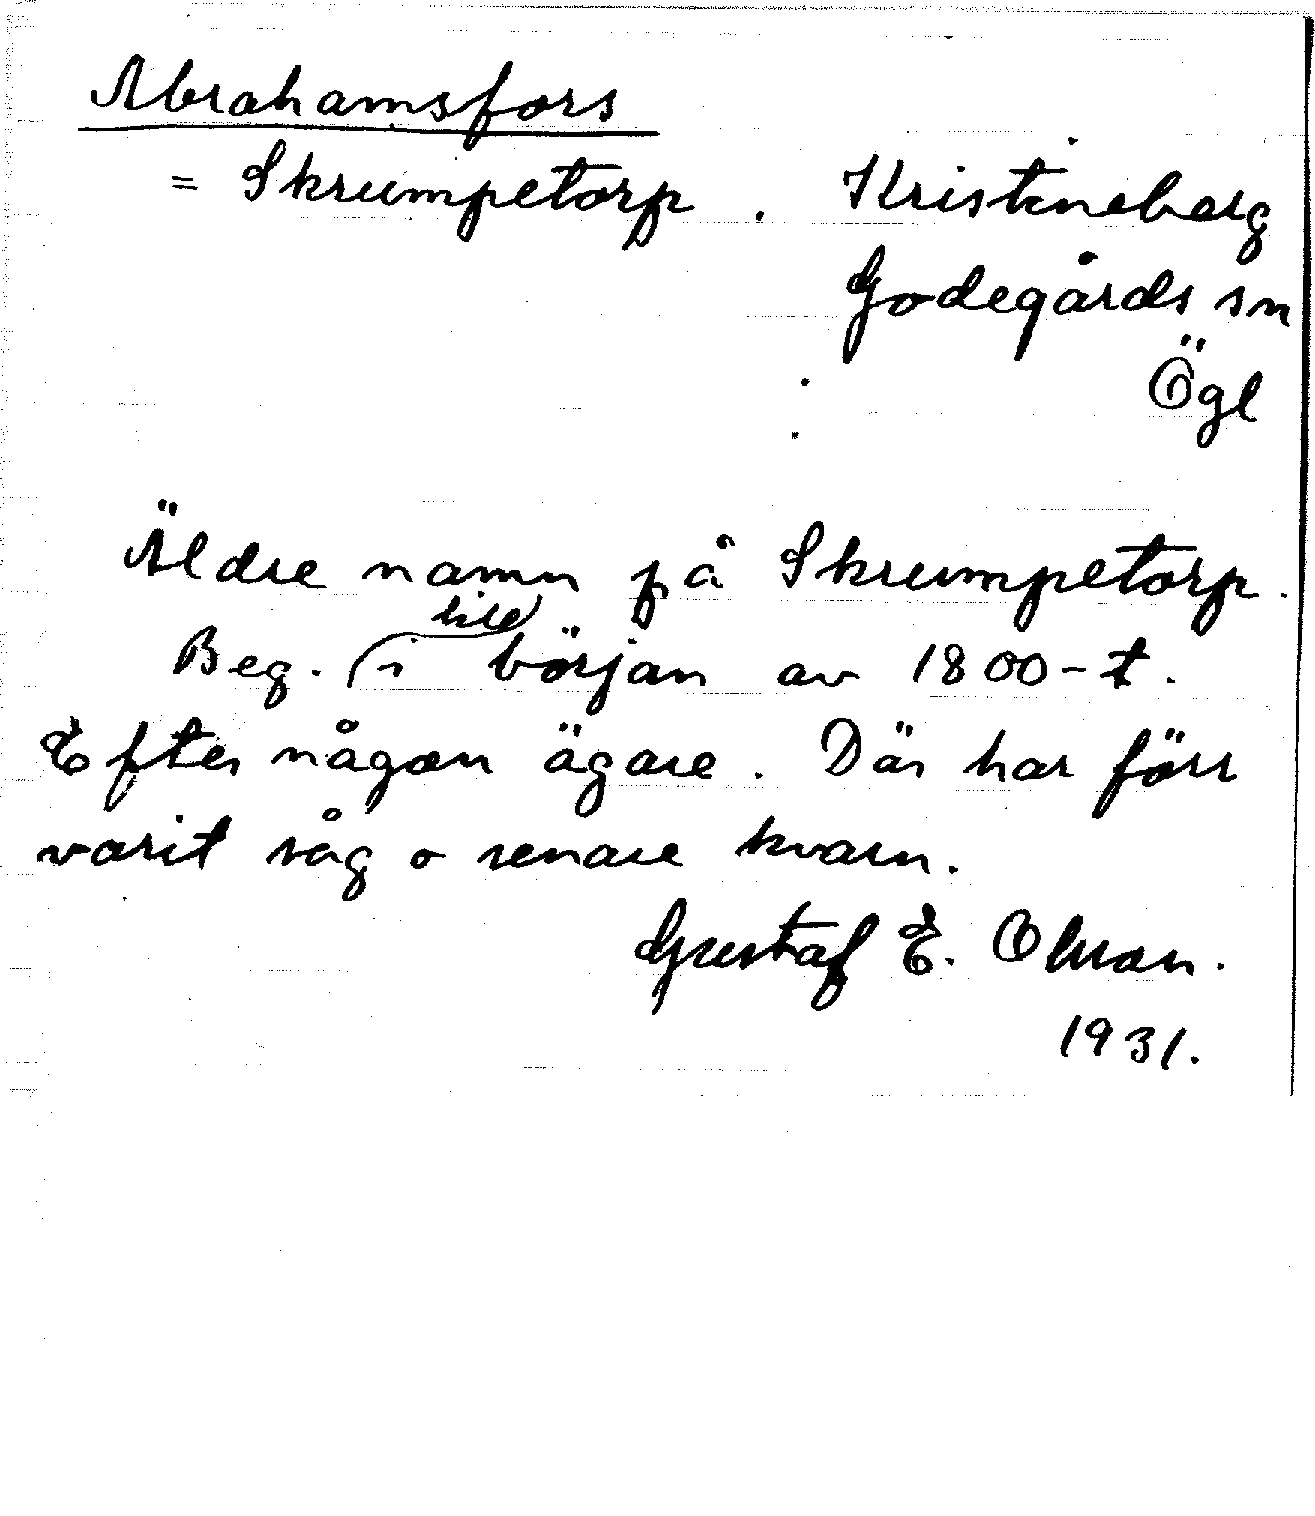 Abrahamsfors
= Skrumpetorp. Kristineberg
Godegårds sn
Ögl
Äldre namn på Skrumpetorp.
till
Beg. i början av 1800-t.
Efter någon ägare. Där har förr
varit såg o senare kvarn.
Gustaf E. Olsson.
1931.